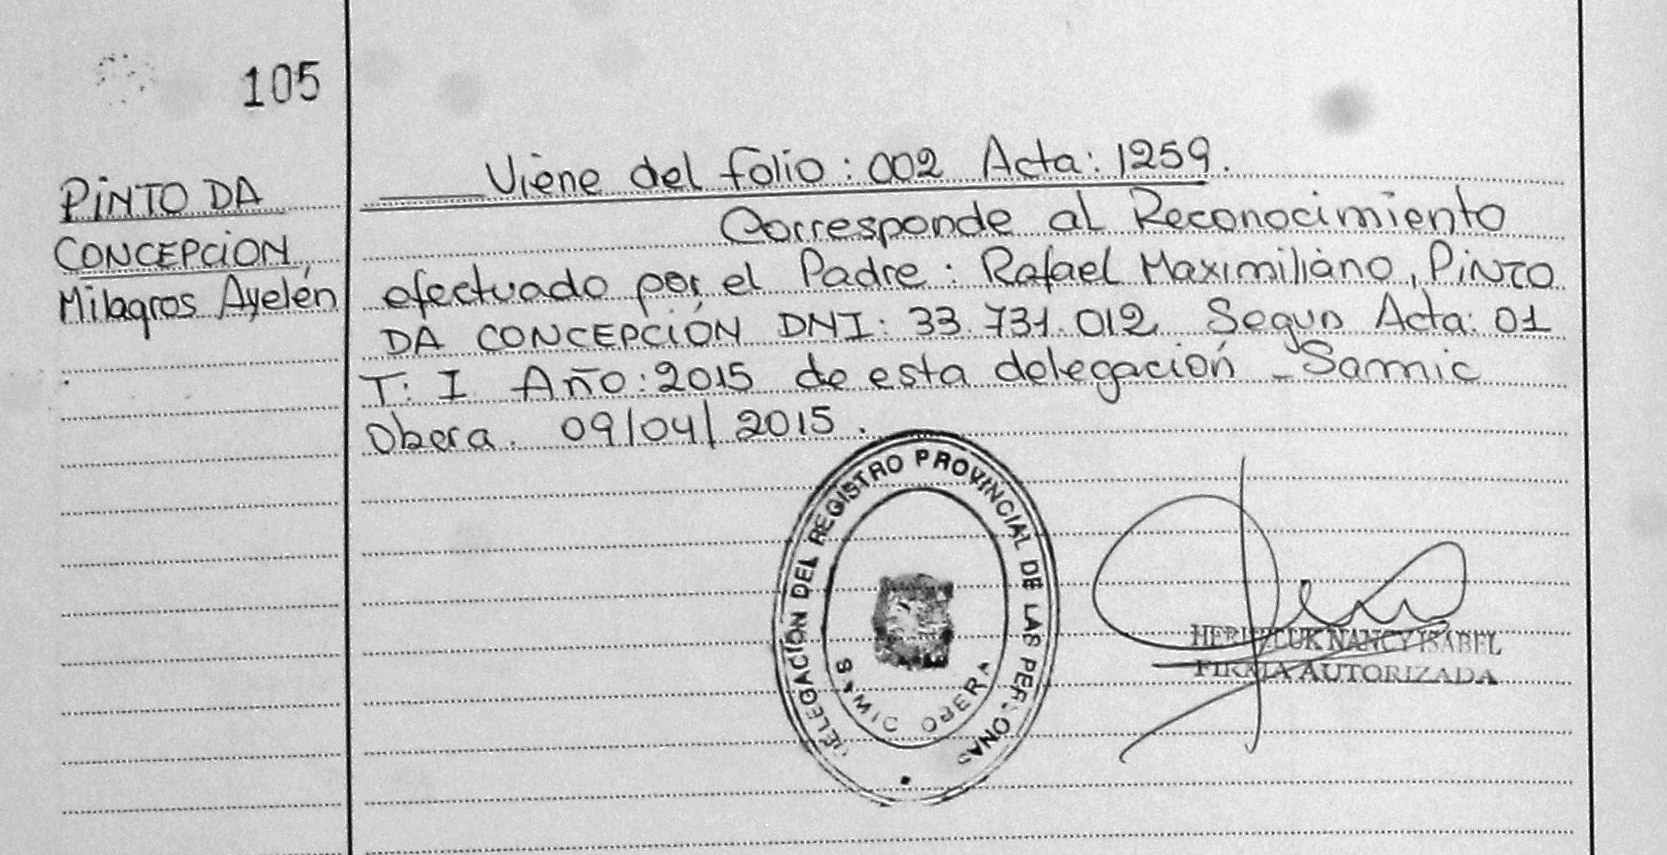 105
PINTO DA
CONCEPCIÓN,
Milagros Ayelén
Viene del folio: 002 Acta: 1259.
Corresponde al Reconocimiento
efectuado por el Padre: Rafael Maximiliano, PINTO
DA CONCEPCIÓN DNI: 33.731.012 Segun Acta: 01
T: I Año: 2015 de esta delegación - Samic
Obera. 09/04/2015.
DELEGACIÓN DEL REGISTRO PROVINCIAL DE LAS PERSONAS
SAMIC OBERA
NANCY ISABEL
FIRMA AUTORIZADA